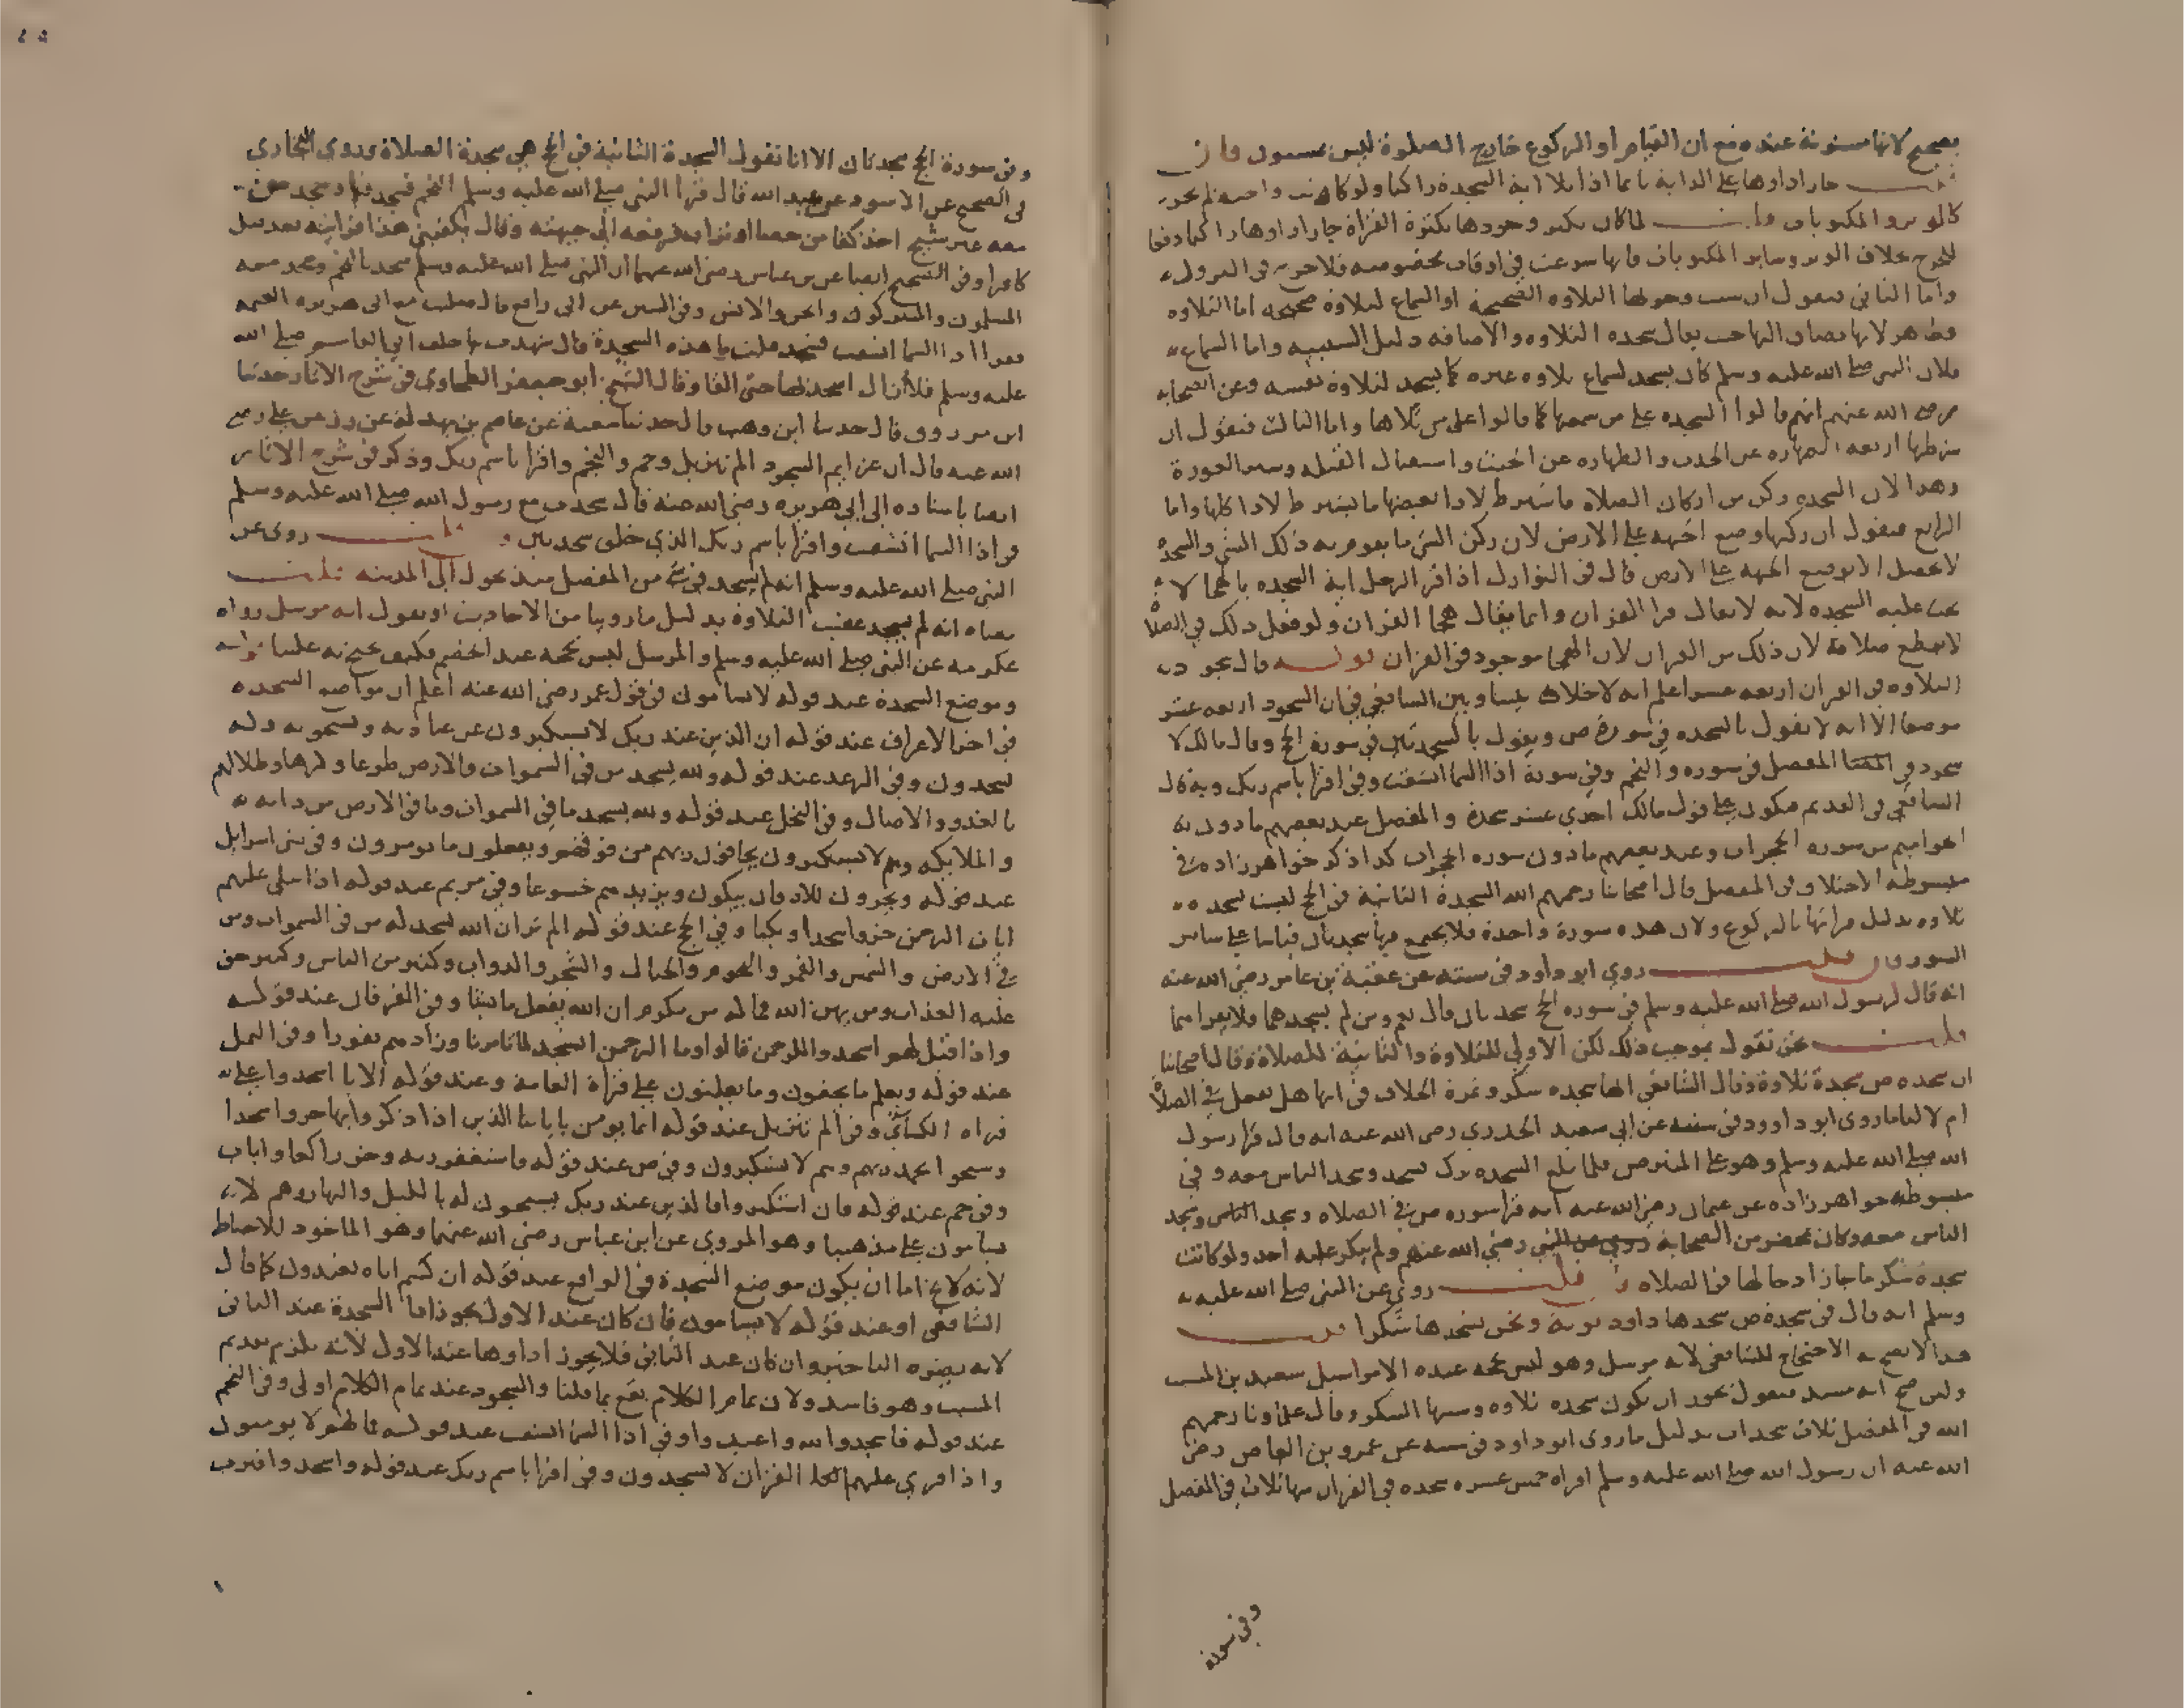 بصحيح لانها مسنونة عنده منع ان القيام او الركوع خارج الصلوة ليس بمسنون فان
قلت جاز اداوها على الدابة بايما اذا تلا اية السجدة راكبا ولو كانت واجبة لم تجز
كالوتر والمكتوبات قلت لما كان يكثر وجودها بكثرة القراة جاز اداوها راكبا دفعا
للحرج بخلاف الوتر وساير المكتوبات فانها شرعت في اوقات مخصوصه فلا حرج في النزول
واما الثاني فنقول ان سبب وجوبها التلاوه الصحيحة او السماع لتلاوة صحيحه اما التلاوه
فظاهر لانها تضاف اليها حيث يقال سجده التلاوه والاضافه دليل السببيه واما السماع
فلان النبي صلى الله عليه وسلم كان يسجد لسماع تلاوه غيره كما يسجد لتلاوة نفسه وعن الصحابه
رضي الله عنهم انهم قالوا السجده على من سمعها كما قالوا على من تلاها واما الثالث فنقول ان
شرطها اربعه الطهاره عن الحدث والطهاره عن الخبث واستقبال القبله وستر العورة
وهذا لان السجده ركن من اركان الصلاه فاشترط لادا بعضها ما يشترط لادا كلها واما
الرابع فنقول ان ركنها وضع الجبهه على الارض لان ركن الشي ما يقوم به ذلك الشي والسجدة
لا تحصل الا بوضع الجبهه على الارض قال في النوازل اذا قرا الرجل اية السجده بالهجا لا
تجب عليه السجده لانه لا يقال قرا القران وانما يقال هجا القران ولو فعل ذلك في الصلاة
لا يقطع صلاته لان ذلك من القران لان الهجا موجود في القران قوله قال سجود
التلاوه في القران اربعه عشر اعلم انه لا خلاف بيننا وبين الشافعي في ان السجود اربعه عشر
موضعا الا انه لا يقول بالسجده في سورة ص ويقول بالسجدتين في سورة الحج وقال مالك لا
سجود في المفصل في سوره والنجم وفي سورة اذا السما انشقت وفي اقرا باسم ربك وبه قال
الشافعي في القديم فيكون على قول مالك احدي عشر سجدة والمفصل عند بعضهم ما دون
الحواميم من سوره الحجرات وعند بعضهم ما دون سوره الحجرات كذا ذكر خواهر زاده في
مبسوطه الاختلاف في المفصل قال اصحابنا رحمهم الله السجدة الثانية في الحج ليست بسجده
تلاوه بدليل قرانها بالركوع ولان هذه سورة واحدة فلا يجتمع فيها سجدتان قياسا على ساير
السور فان قلت روي ابو داود في سننه عن عقبة بن عامر رضي الله عنه
انه قال لرسول الله صلى الله عليه وسلم في سوره الحج سجدتان قال نعم ومن لم يسجدهما فلا يقراهما
قلت نحن نقول بموجب ذلك لكن الاولي للتلاوة والثانية للصلاة وقال اصحابنا
ان سجده ص سجدة تلاوة وقال الشافعي انها سجده شكر وثمرة الخلاف في انها هل تفعل في الصلاة
ام لا لنا ما روى ابو داوود في سننه عن ابي سعيد الخدري رضي الله عنه انه قال قرا رسول
الله صلى الله عليه وسلم وهو على المنبر ص فلما بلغ السجده نزل فسجد وسجد الناس معه وفي
مبسوطه خواهر زاده عن عثمان رضي الله عنه انه قرا سوره ص في الصلاه وسجد وسجد
الناس معه وكان بمحضر من الصحابة رضي الله عنهم ولم ينكر عليه احد ولو كانت
سجدة شكر ما جاز ادخالها في الصلاه فان قلت روي عن النبي صلى الله عليه
وسلم انه قال في سجدة ص سجدها داود توبة ونحن نسجدها شكرا قلت
هذا لا يصح به الاحتجاج للشافعي لانه مرسل وهو ليس بحجه عنده الا مراسيل سعيد بن المسيب
ولين صح انه مسند فنقول يجوز ان يكون سجده تلاوه وسببها الشكر وقال علماؤنا رحمهم
الله في المفصل ثلاث سجدات بدليل ما روى ابو داود في سننه عن عمرو بن العاص رضي
الله عنه ان رسول الله صلى الله عليه وسلم اقراه خمس عشره سجده في القران منها ثلاث في المفصل
وفي سورة
وفي سورة الحج سجدتان الا انا نقول السجدة الثانية في الحج هي سجدة الصلاة وروى البخاري
في الصحيح عن الاسود عن عبد الله قال قرا النبي صلى الله عليه وسلم النجم فسجد فيها وسجد من
معه غير شيخ اخذ كفا من حصا او تراب فرفعه الى جبهته وقال يكفيني هذا فرايته بعد قتل
كافرا وفي الصحيح ايضا عن بن عباس رضي الله عنهما ان النبي صلى الله عليه وسلم سجد بالنجم وسجد معه
المسلمون والمشركون والجن والانس وفي السنن عن ابي رافع قال صليت مع ابي هريره العتمه
فقرا اذا السما انشقت فسجد فقلت ما هذه السجدة قال سجدت بها خلف ابي القاسم صلى الله
عليه وسلم فلا أزال اسجد بها حتى القاه وقال الشيخ ابو جعفر الطحاوي في شرح الاثار حدثنا
ابن مرزوق قال حدثنا ابن وهب قال حدثنا شعبة عن عاصم بن بهدلة عن زر عن علي رضي
الله عنه قال ان عزايم السجود الم تنزيل وحم والنجم واقرا باسم ربك وذكر في شرح الاثار
ايضا باسناده الى ابي هريره رضي الله عنه قال سجدت مع رسول الله صلى الله عليه وسلم
في اذا السما انشقت واقرا باسم ربك الذي خلق سجدتين فان قلت روى عن
النبي صلى الله عليه وسلم انه لم يسجد في شي من المفصل منذ تحول الى المدينه قلت
معناه انه لم يسجد عقيب التلاوة بدليل ما روينا من الاحاديث او نقول انه مرسل رواه
عكرمه عن النبي صلى الله عليه وسلم والمرسل ليس بحجه عند الخصم فكيف يحتج به علينا قوله
وموضع السجدة عند قوله لا يسامون في قول عمر رضي الله عنه اعلم ان مواضع السجده
في اخر الاعراف عند قوله ان الذين عند ربك لا يستكبرون عن عبادته ويسبحونه وله
يسجدون وفي الرعد عند قوله ولله يسجد من في السموات والارض طوعا وكرها وظلالهم
بالغدو والاصال وفي النخل عند قوله ولله يسجد ما في السموات وما في الارض من دابه
والملايكه وهم لا يستكبرون يخافون ربهم من فوقهم ويفعلون ما يومرون وفي بني اسرايل
عند قوله ويخرون للاذقان يبكون ويزيدهم خشوعا وفي مريم عند قوله اذا تتلى عليهم
ايات الرحمن خروا سجدا وبكيا وفي الحج عند قوله الم تر ان الله يسجد له من في السموات ومن
في الارض والشمس والقمر والنجوم والجبال والشجر والدواب وكثير من الناس وكثير حق
عليه العذاب ومن يهن الله فما له من مكرم ان الله يفعل ما يشا وفي الفرقان عند قوله
واذا قيل لهم اسجدوا للرحمن قالوا وما الرحمن انسجد لما تامرنا وزادهم نفورا وفي النمل
عند قوله ويعلم ما يخفون وما يعلنون على قراة العامة وعند قوله الا يا اسجدوا على
قراه الكسائي وفي الم تنزيل عند قوله انما يومن باياتنا الذين اذا ذكروا بها خروا سجدا
وسبحوا بحمد ربهم وهم لا يستكبرون وفي ص عند قوله فاستغفر ربه وخر راكعا واناب
وفي حم عند قوله فان استكبروا فالذين عند ربك يسبحون له بالليل والنهار وهم لا
يسامون على مذهبنا وهو المروي عن ابن عباس رضي الله عنهما وهو الماخوذ للاحتياط
لانه لا يخ اما ان يكون موضع السجدة في الواقع عند قوله ان كنتم اياه تعبدون كما قال
الشافعي او عند قوله لا يسامون فان كان عند الاول يجوز اما السجدة عند الثاني
لانه يضره التاخير وان كان عند الثاني فلا يجوز اداوها عند الاول لانه يلزم تقديم
المسبب وهو فاسد ولان تمام الكلام يقع بما قلنا والسجود عند تمام الكلام اولى وفي النجم
عند قوله فاسجدوا لله واعبدوا وفي اذا السما انشقت عند قوله فما لهم لا يومنون
واذا قري عليهم القران لا يسجدون وفي اقرا باسم ربك عند قوله واسجد واقترب